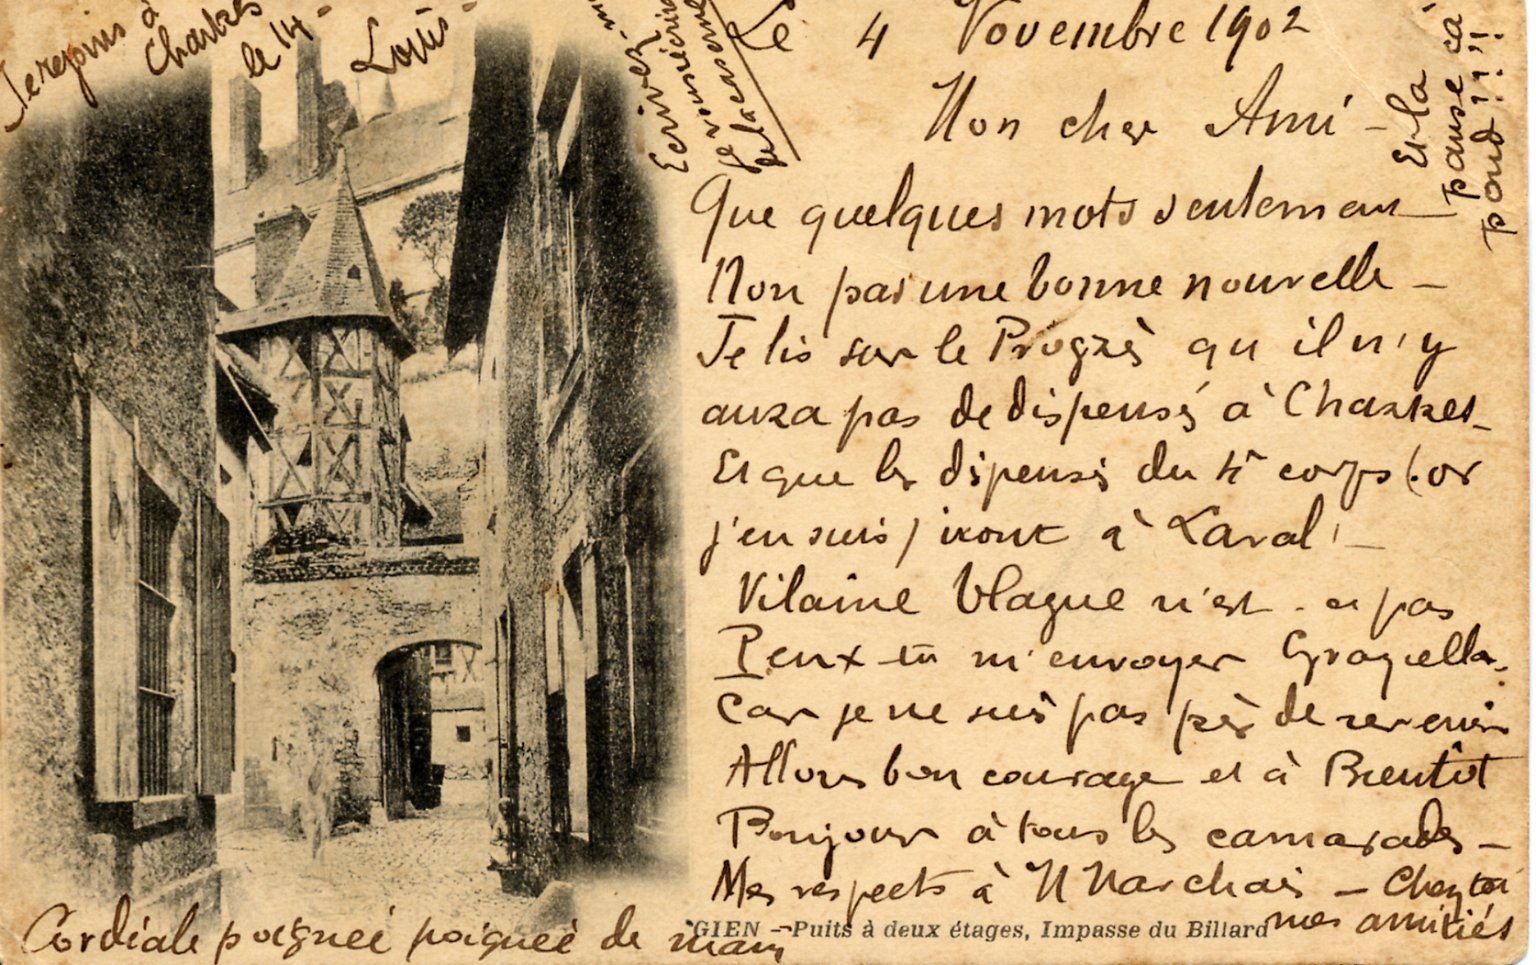 Le 4 Novembre 1902
Mon cher Ami -
Que quelques mots seulement
Non pas une bonne nouvelle -
Je lis sur le Progrès qu il n'y
aura pas de dispensés à Chartres -
Et que les dipensés du 4e corps (or
j'en suis) iront à Laval ! -
Vilaine blague n'est - ce pas
Peux - tu m'envoyer Graziella.
Car je ne suis pas près de revenir
Allons bon courage et à Bientôt
Bonjour à tous les camarades -
Mes respects à M Marchais - Chez toi
mes amitiés
Cordiale poignée poignée de main
Je rejoins à
Chartres
le 14 -
Louis -
Ecrivez
je vous écrirai
de la caserne
Et la
panse ça
pond !!!!
GIEN - Puits à deux étages, Impasse du Billard